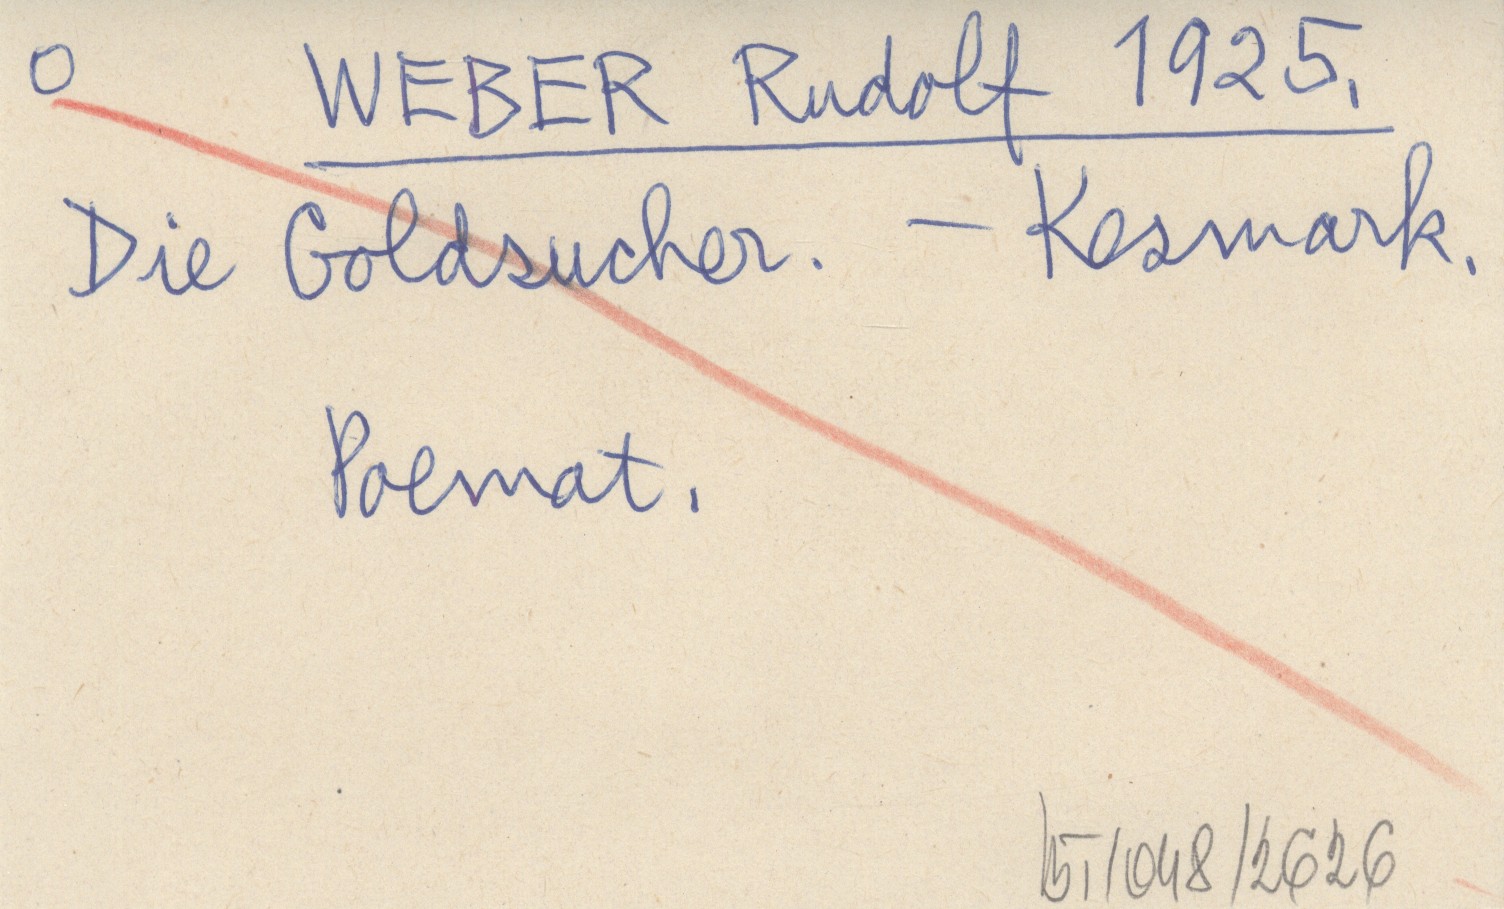 O WEBER Rudolf 1925.
Die Goldsucher. – Kesmark.
Poemat.
/048/2626